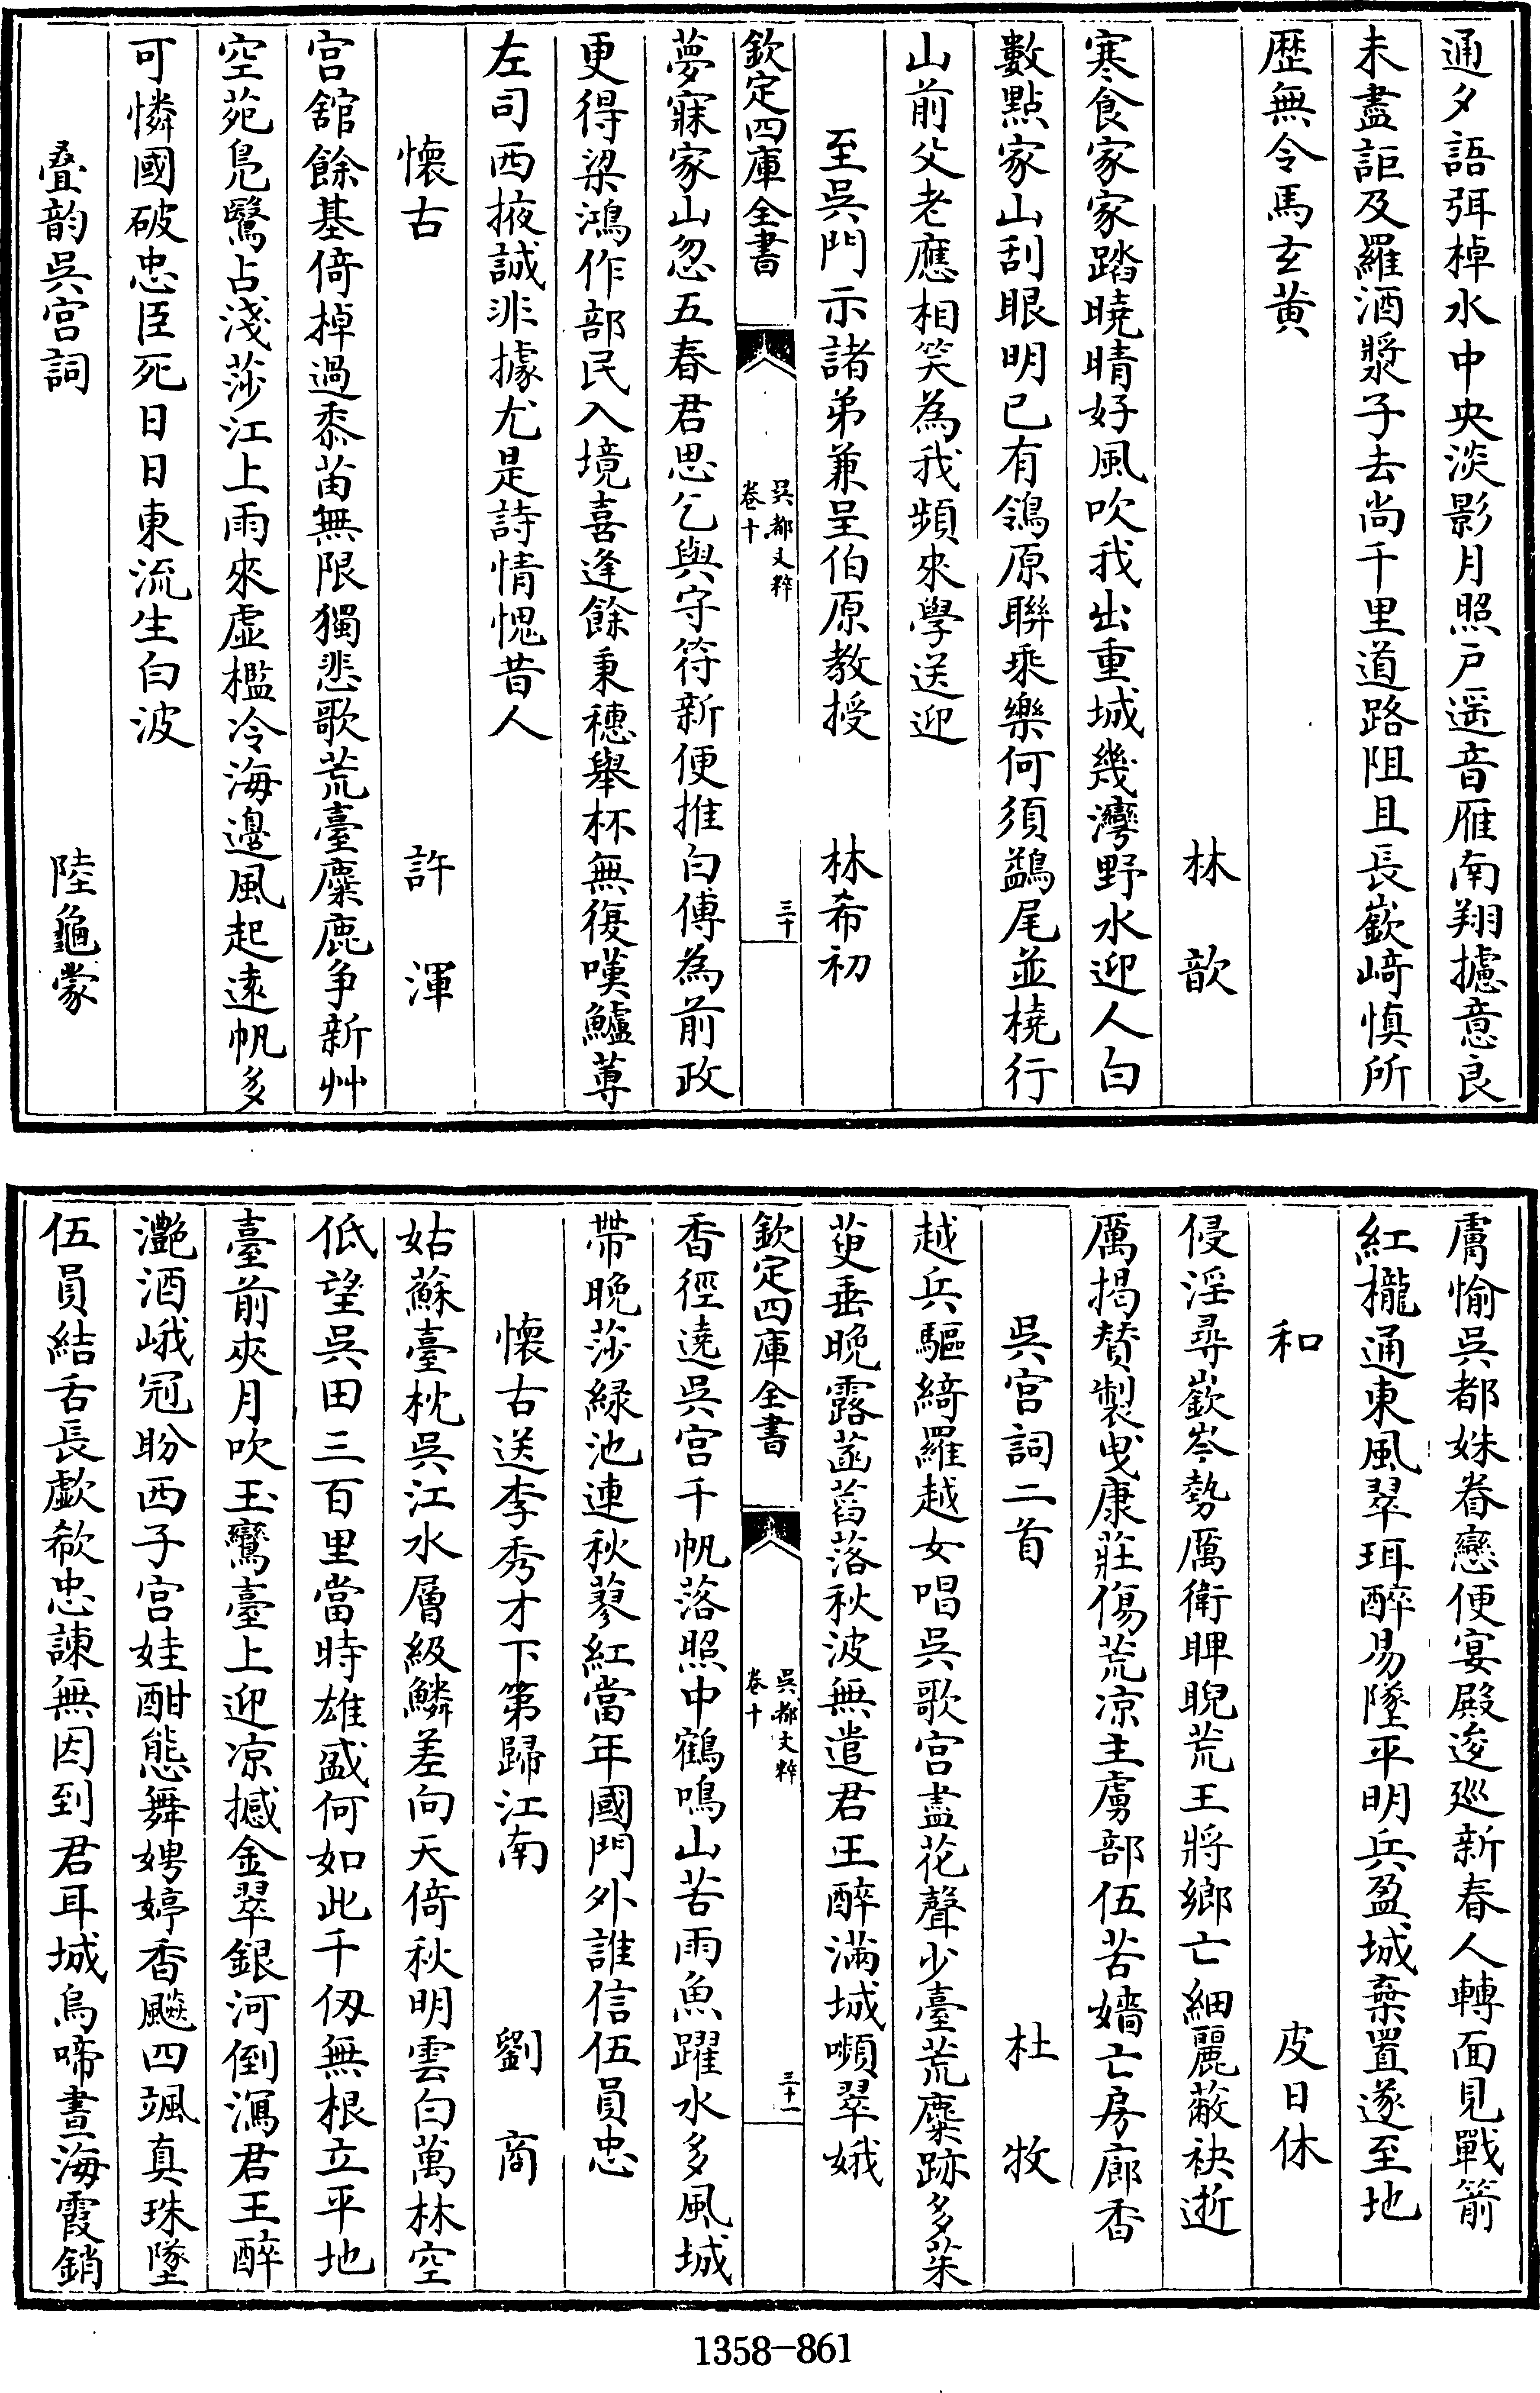 通夕語弭棹水中央淡影月照户遥音雁南翔攄意良
未盡詎及羅酒漿子去尚千里道路阻且長嶔﨑慎所
歴無令馬玄黄
林歆
寒食家家踏曉晴好風吹我出重城幾灣野水迎人白
數點家山刮眼明已有鴒原聯乘樂何須鷁尾並橈行
山前父老應相笑為我頻來學送迎
至吳門示諸弟兼呈伯原教授　林希初
欽定四庫全書　吳都文粹　卷十　三十
夢寐家山忽五春君思乞與守符新便推白傅為前政
更得梁鴻作部民入境喜逢餘秉穗舉杯無復嘆鱸蓴
左司西掖誠非據尤是詩情愧昔人
懷古　許渾
宫舘餘基倚棹過黍苗無限獨悲歌荒臺麋鹿争新艸
空苑鳬鷖占淺莎江上雨來虚檻冷海邊風起逺帆多
可憐國破忠臣死日日東流生白波
叠韵吳宫詞　陸龜蒙
膚愉吳都姝眷戀便宴殿逡廵新春人轉面見戰箭
紅櫳通東風翠珥醉易墜平明兵盈城棄置遂至地
和　皮日休
侵淫尋嶔岑勢厲衛睥睨荒王將鄉亡細麗蔽袂逝
厲揭賛製曵康莊傷荒凉主虜部伍苦嬙亡房廊香
吳宫詞二首　杜牧
越兵驅綺羅越女唱吳歌宫盡花聲少臺荒麋跡多茱
萸垂晚露菡萏落秋波無遣君王醉滿城嚬翠娥
欽定四庫全書　吳都文粹　卷十　三十一
香徑遶吳宫千帆落照中鶴鳴山苦雨魚躍水多風城
帶晚莎緑池連秋蓼紅當年國門外誰信伍員忠
懷古送李秀才下第歸江南　劉商
姑蘇臺枕吳江水層級鱗差向天倚秋明雲白萬林空
低望吳田三百里當時雄盛何如此千仭無根立平地
臺前夾月吹玉鸞臺上迎凉撼金翠銀河倒瀉君王醉
灔酒峨冠盼西子宫娃酣態舞娉婷香飈四颯真珠墜
伍員結舌長歔欷忠諫無因到君耳城烏啼晝海霞銷
1358-861